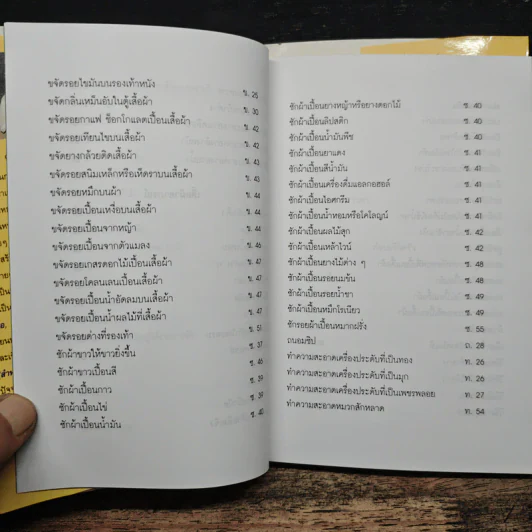 ขจัดรอยไขมันบนรองเท้าหนัง ข. 25
ขจัดกลิ่นเหม็นอับในตู้เสื้อผ้า ข. 30
ขจัดรอยกาแฟ ช็อกโกแลตเปื้อนเสื้อผ้า ข. 42
ขจัดรอยเทียนไขบนเสื้อผ้า ข. 42
ขจัดยางกล้วยติดเสื้อผ้า ข. 43
ขจัดรอยสนิมเหล็กหรือเห็ดราบนเสื้อผ้า ข. 43
ขจัดรอยหมึกบนผ้า ข. 44
ขจัดรอยเปื้อนเหงื่อบนเสื้อผ้า ข. 44
ขจัดรอยเปื้อนจากหญ้า ข. 44
ขจัดรอยเปื้อนจากตัวแมลง ข. 46
ขจัดรอยเกสรดอกไม้เปื้อนเสื้อผ้า ข. 47
ขจัดรอยโคลนเลนเปื้อนเสื้อผ้า ข. 47
ขจัดรอยเปื้อนน้ำอัดลมบนเสื้อผ้า ข. 47
ขจัดรอยเปื้อนน้ำผลไม้ที่เสื้อผ้า ข. 47
ขจัดรอยด่างที่รองเท้า ข. 51
ซักผ้าขาวให้ขาวยิ่งขึ้น ซ. 37
ซักผ้าขาวเปื้อนสี ซ. 46
ซักผ้าเปื้อนกาว ซ. 39
ซักผ้าเปื้อนไข่ ซ. 39
ซักผ้าเปื้อนน้ำมัน ซ. 40
ซักผ้าเปื้อนยางหญ้าหรือยางดอกไม้ ซ. 40
ซักผ้าเปื้อนลิปสติก ซ. 40
ซักผ้าเปื้อนน้ำมันพืช ซ. 40
ซักผ้าเปื้อนยาแดง ซ. 41
ซักผ้าเปื้อนสีน้ำมัน ซ. 41
ซักผ้าเปื้อนเครื่องดื่มแอลกอฮอล์ ซ. 41
ซักผ้าเปื้อนไอศกรีม ซ. 41
ซักผ้าเปื้อนน้ำหอมหรือโคโลญน์ ซ. 41
ซักผ้าเปื้อนผลไม้สุก ซ. 42
ซักผ้าเปื้อนเหล้าไวน์ ซ. 42
ซักผ้าเปื้อนยางไม้ต่าง ๆ ซ. 48
ซักผ้าเปื้อนรอยนมข้น ซ. 48
ซักผ้าเปื้อนรอยน้ำชา ซ. 49
ซักผ้าเปื้อนหมึกโรเนียว ซ. 49
ซักรอยผ้าเปื้อนหมากฝรั่ง ซ. 55
ถนอมซิป ถ. 28
ทำความสะอาดเครื่องประดับที่เป็นทอง ท. 26
ทำความสะอาดเครื่องประดับที่เป็นมุก ท. 26
ทำความสะอาดเครื่องประดับที่เป็นเพชรพลอย ท. 27
ทำความสะอาดหมวกสักหลาด ท. 54